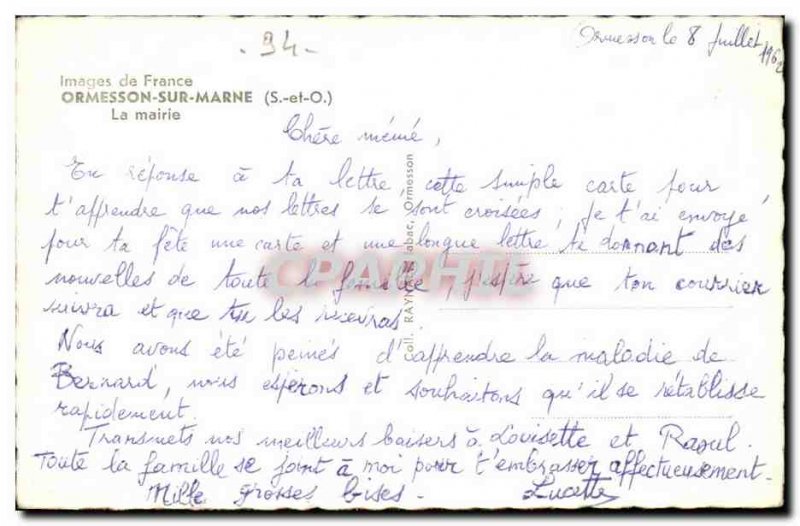 . 94 -
Ormesson le 8 Juillet 1962
Images de France
ORMESSON-SUR-MARNE (S.-et-O.)
La mairie
Chère mémé,
En réponse à ta lettre, cette simple carte pour
t'apprendre que nos lettres se sont croisées; Je t'ai envoyé
pour ta fête une carte et une longue lettre te donnant des
nouvelles de toute la famille, j'espère que ton courrier
suivra et que tu les recevras.
Nous avons été peinés d'apprendre la maladie de
Bernard, nous espérons et souhaitons qu'il se rétablisse
rapidement.
Transmets nos meilleurs baisers à Louisette et Raoul.
Toute la famille se joint à moi pour t'embrasser affectueusement-
Mille grosses bises - Lucette
Coll. Tabac, Ormesson
CPAPHIL